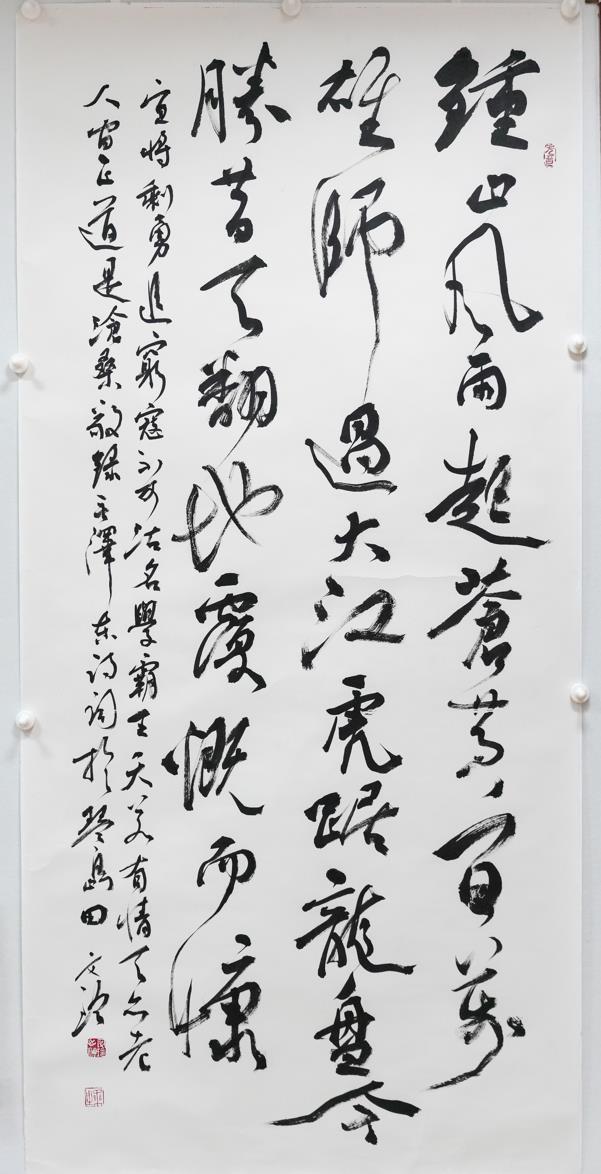 鍾山風雨起蒼黃百萬
雄師過大江虎踞龍盤今
勝昔天翻地覆慨而慷
宜將剩勇追窮寇不可沽名學霸王天若有情天亦老
人間正道是滄桑敬錄毛澤東詩詞於琴島田文